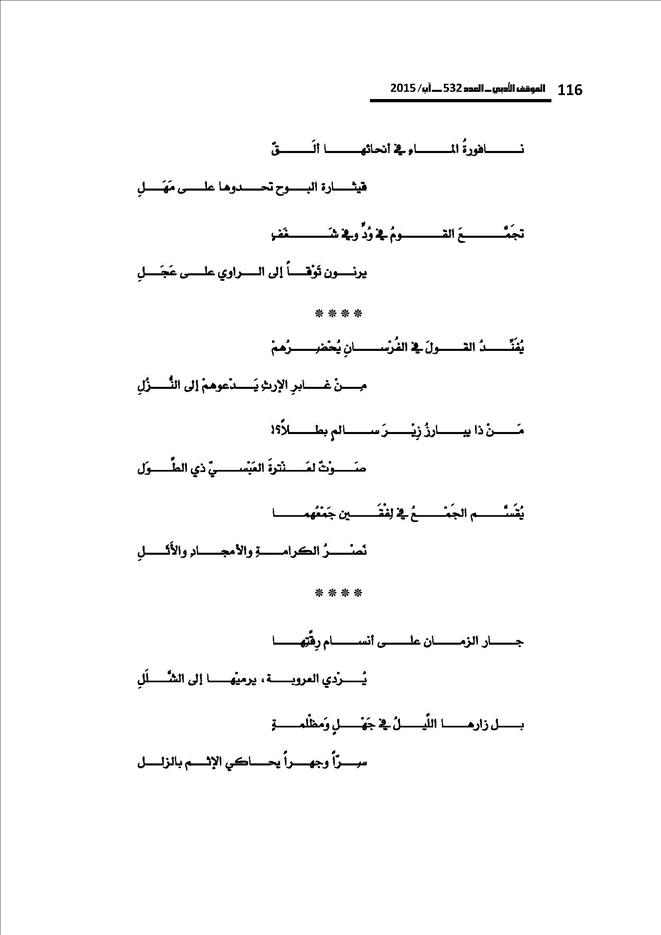 116 الموقف الأدبي ـ العدد 532 ـ آب/ 2015
نافورةُ الماءِ في أنحائها ألَقٌ
قيثارة البوح تحدوها على مَهَلِ
تجَمَّعَ القومُ في وُدٍّ وفي شَغَفٍ
يرنون تَوْقاً إلى الراوي على عَجَلِ
****
يُفَنِّدُ القولَ في الفُرْسانِ يُحْضِرُهمْ
مِنْ غابرِ الإرثِ يَدْعوهمْ إلى النُّزُلِ
مَنْ ذا يبارزُ زِيْرَ سالمٍ بطلاً؟!
صَوْتٌ لعَنْترةَ العَبْسيّ ذي الطِّوَل
يُقَسَّم الجَمْعُ في لِفْقَين جَمْعُهما
نَصْرُ الكرامةِ والأمجادِ والأَثَلِ
****
جار الزمان على أنسام رِقَّتِها
يُرْدي العروبة، يرميْها إلى الشَّلَلِ
بل زارها اللَّيلُ في جَهْلٍ وَمظْلمةٍ
سِرّاً وجهراً يحاكي الإثم بالزلل